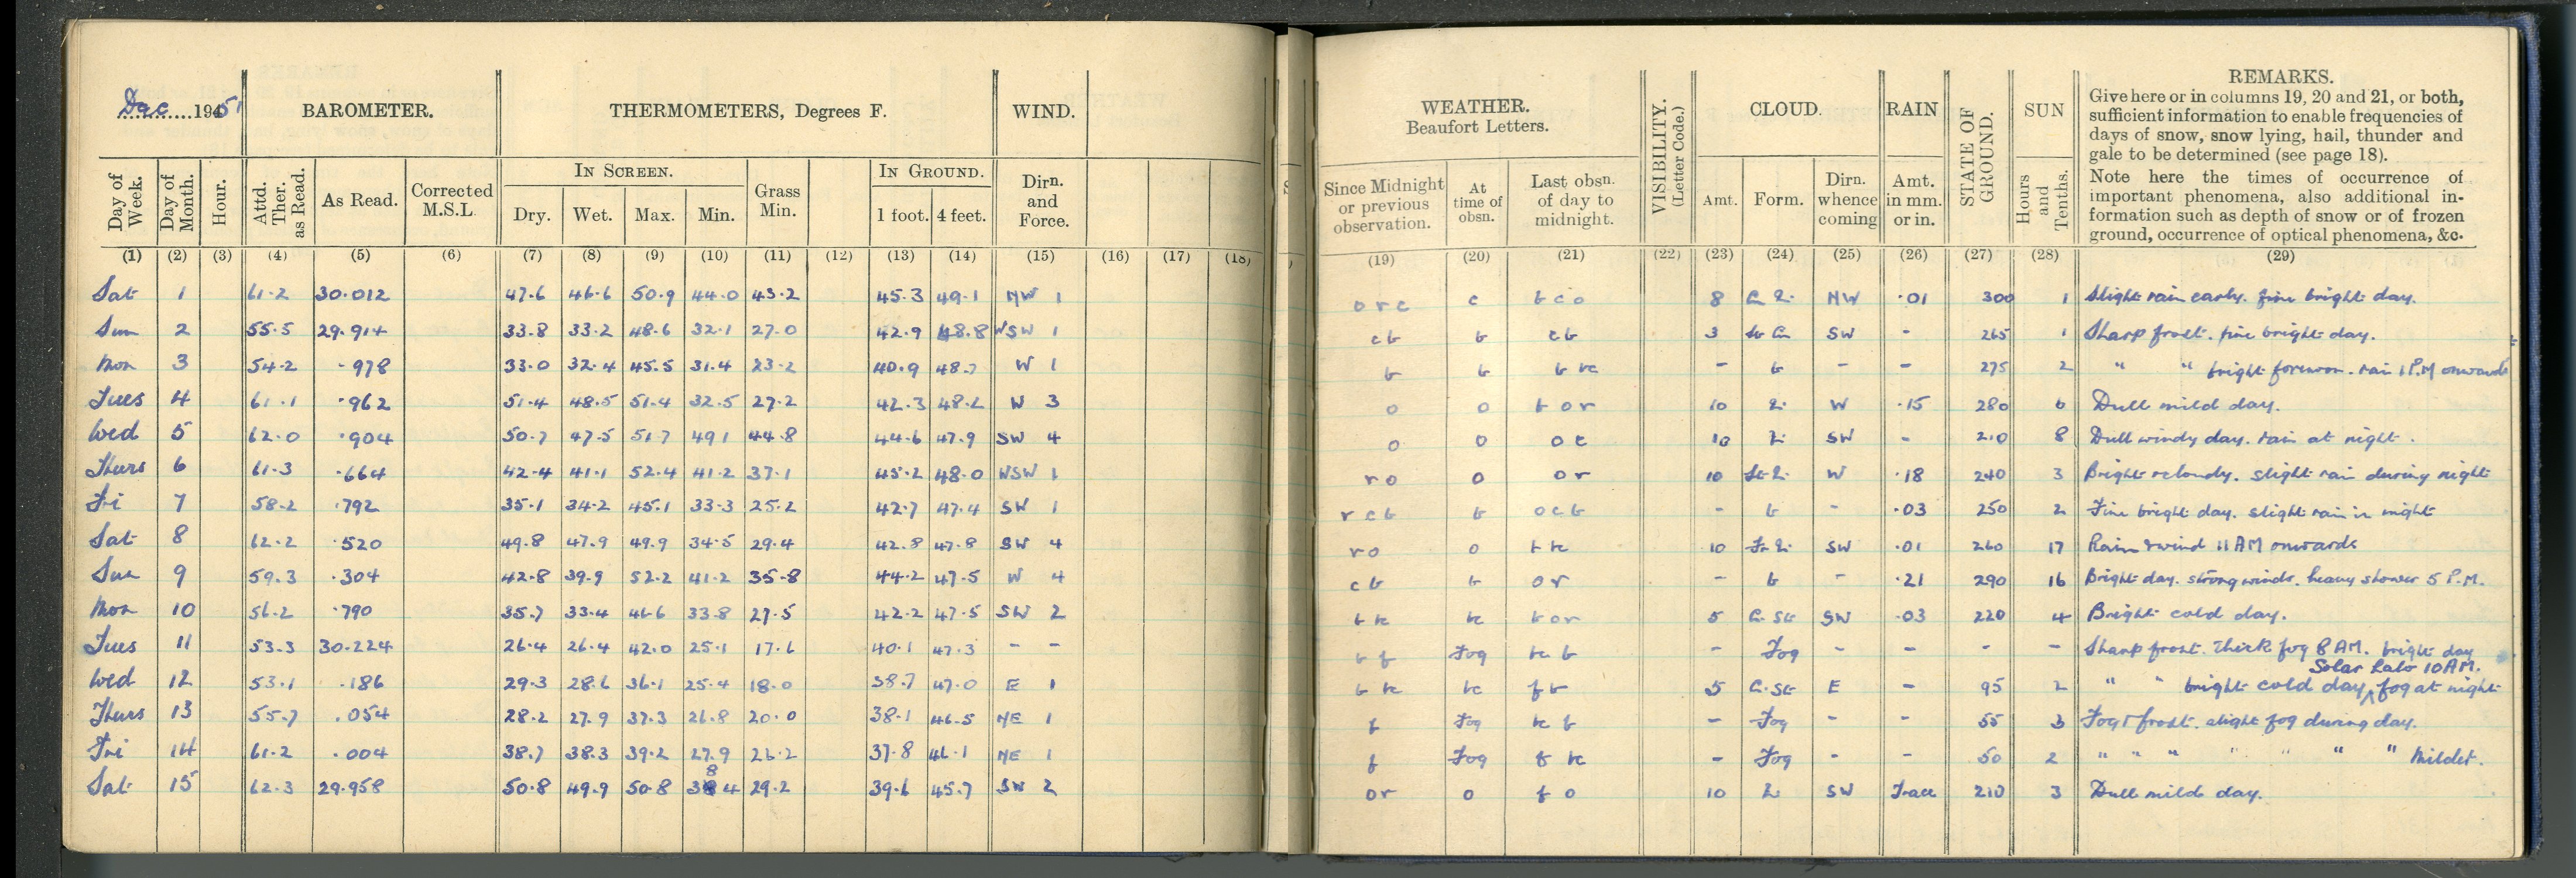 Dec 1951
BAROMETER.
THERMOMETERS, Degrees F.
WIND.
WEATHER.
Beaufort Letters.
VISIBILITY.
(Letter Code.)
CLOUD.
RAIN
STATE OF
GROUND.
SUN
REMARKS.
Give here or in columns 19, 20 and 21, or both,
sufficient information to enable frequencies of
days of snow, snow lying, hail, thunder and
gale to be determined (see page 18).
Note here the times of occurrence of
important phenomena, also additional in-
formation such as depth of snow or of frozen
ground, occurrence of optical phenomena, &c.
Day of Week. Day of Month. Hour. Attd. Ther. as Read. As Read. Corrected M.S.L.
IN SCREEN.
Dry. Wet. Max. Min.
Grass Min.
IN GROUND.
1 foot. 4 feet.
Dirn. and Force.
Since Midnight or previous observation. At time of obsn. Last obsn. of day to midnight.
Amt. Form. Dirn. whence coming
Amt. in mm. or in.
Hours and Tenths.
(1) (2) (3) (4) (5) (6) (7) (8) (9) (10) (11) (12) (13) (14) (15) (16) (17) (18) (19) (20) (21) (22) (23) (24) (25) (26) (27) (28) (29)
Sat 1 61.2 30.012 47.6 46.6 50.9 44.0 43.2 45.3 49.1 NW 1 o r c c b c o 8 NW .01 300 1 Slight rain early. fine bright day.
Sun 2 55.5 29.914 33.8 33.2 48.6 32.1 27.0 42.9 48.8 WSW 1 c b b c b 3 SW - 265 1 Sharp frost. fine bright day.
Mon 3 54.2 .978 33.0 32.4 45.5 31.4 23.2 40.9 48.7 W 1 b b b bc - b - - 275 2 " " bright forenoon. rain 1 P.M onwards
Tues 4 61.1 .962 51.4 48.5 51.4 32.5 27.2 42.3 48.2 W 3 o o r o r 10 W .15 280 6 Dull mild day.
Wed 5 62.0 .904 50.7 47.5 51.7 49.1 44.8 44.6 47.9 SW 4 o o o c 10 SW - 210 8 Dull windy day. rain at night.
Thurs 6 61.3 .664 42.4 41.1 52.4 41.2 37.1 45.2 48.0 WSW 1 r o o o r 10 W .18 240 3 Bright & cloudy. slight rain during night
Fri 7 58.2 .792 35.1 34.2 45.1 33.3 25.2 42.7 47.4 SW 1 r c b b o c b - b - .03 250 2 Fine bright day. slight rain in night
Sat 8 62.2 .520 49.8 47.9 49.9 34.5 29.4 42.8 47.8 SW 4 r o o 10 SW .01 260 17 Rain & wind 11 AM onwards
Sun 9 59.3 .304 42.8 39.9 52.2 41.2 35.8 44.2 47.5 W 4 c b b o r - b - .21 290 16 Bright day. strong winds. heavy shower 5 P.M.
Mon 10 56.2 .790 35.7 33.4 46.6 33.8 27.5 42.2 47.5 SW 2 b bc bc 5 SW .03 220 4 Bright cold day.
Tues 11 53.3 30.224 26.4 26.4 42.0 25.1 17.6 40.1 47.3 - - b f Fog bc b - Fog - - - - Sharp frost. Thick fog 8 AM. bright day
Solar Halo 10 AM.
Wed 12 53.1 .186 29.3 28.6 36.1 25.4 18.0 38.7 47.0 E 1 b bc bc f b 5 E - 95 2 " " bright cold day, fog at night
Thurs 13 55.7 .054 28.2 27.9 37.3 26.8 20.0 38.1 46.5 NE 1 f Fog bc b - Fog - - 55 3 Fog & frost. slight fog during day.
Fri 14 61.2 .004 38.7 38.3 39.2 27.9 26.2 37.8 46.1 NE 1 f Fog f bc - Fog - - 50 2 " " " " " " " Milder.
Sat 15 62.3 29.958 50.8 49.9 50.8 38.4 29.2 39.6 45.7 SW 2 o r o f o 10 SW Trace 210 3 Dull mild day.